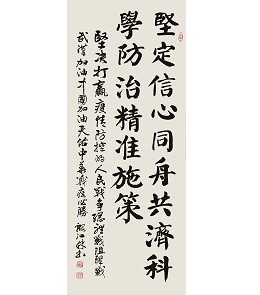 堅定信心同舟共濟科
學防治精准施策
堅决打贏疫情防控的人民戰爭總體戰阻擊戰
武漢加油中國加油天佑中華戰疫必勝